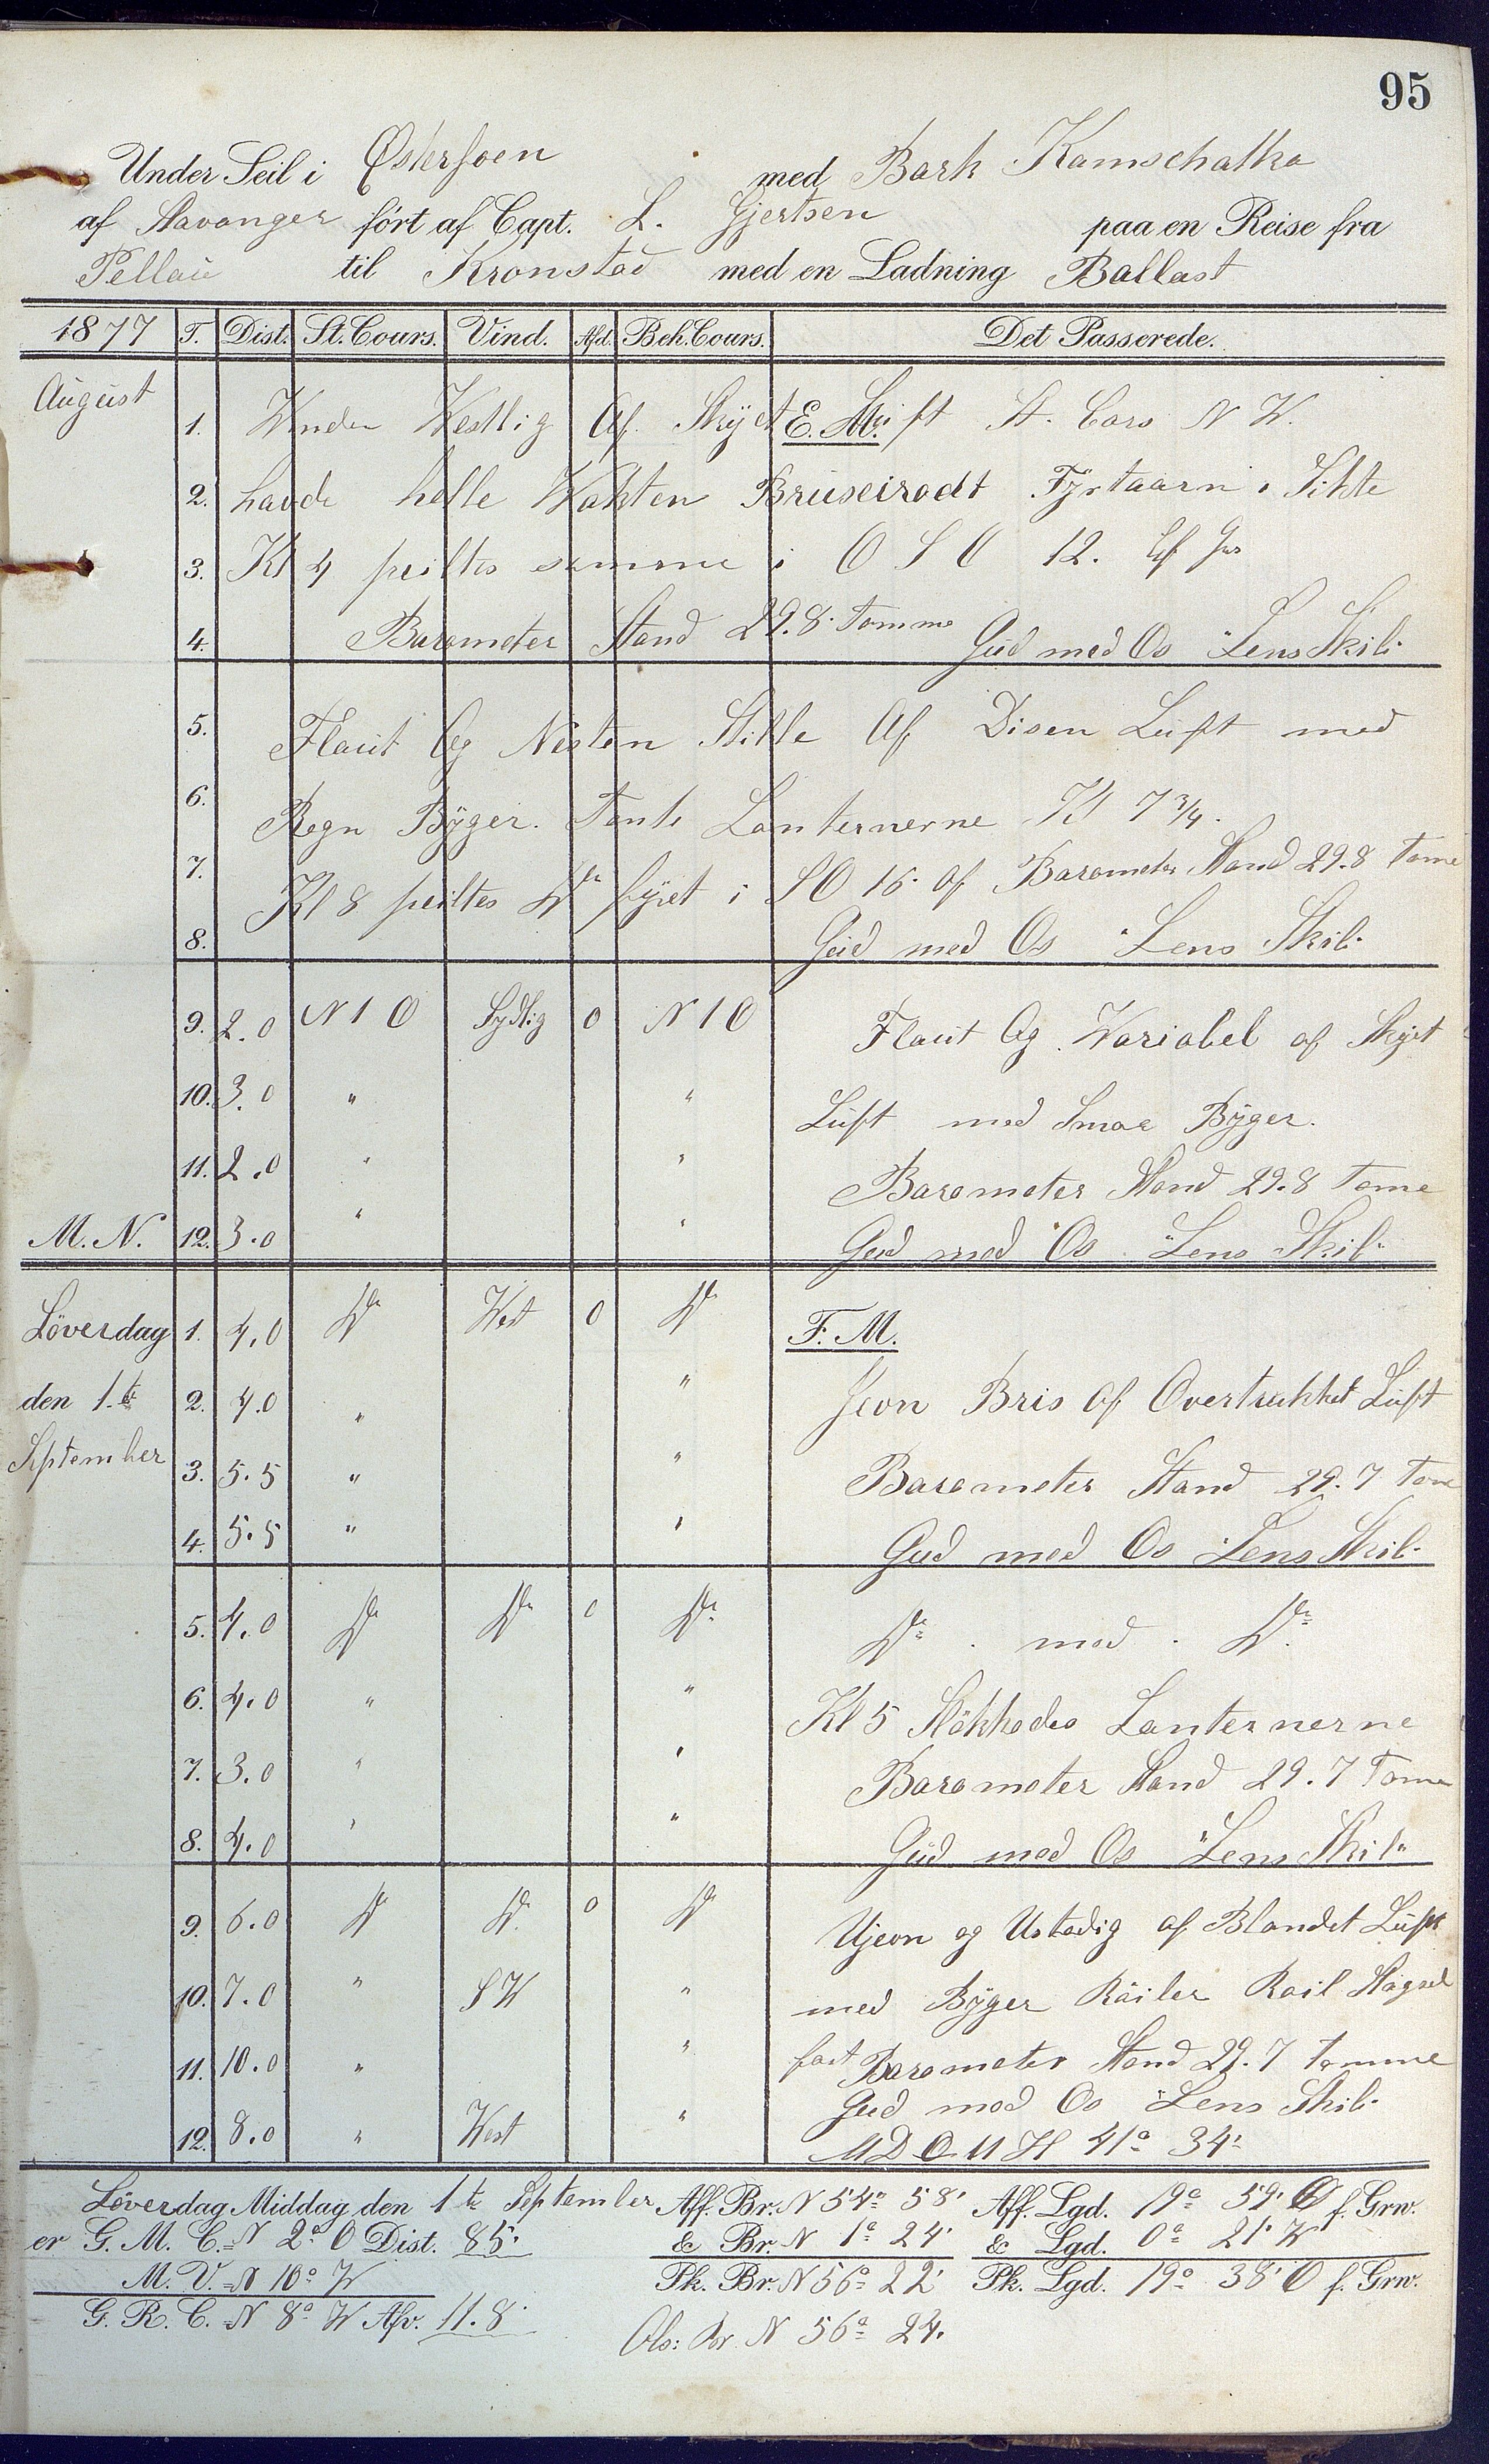 95
Under Seil i Østersoen med Bark Kamschatka
af Stavanger ført af Capt. L. Gjertsen paa en Reise fra
Pellau til Kronstad med en Ladning Ballast
1877 T. Dist. St. Cours. Vind. Afd. Beh. Cours. Det Passerede.
August 1. Vinden Westlig Af Skyet E. M. ift St. Cors N W.
2. havde helle Wakten Brüseirodt Fyrtaarn i Sikte
3. Kl 4 peiltes samme i O S O 12. Af
4. Barometer Stand 29.8. Tomme Gud med Os Lens Skib
5. Flaut Og Nesten Stille Af Disen Luft med
6. Regn Byger. Tante Lanternerne Kl 7 3/4.
7. Kl 8 peiltes Do fyret i S O 16. Af Barometer Stand 29.8 Tome
8. Gud med Os Lens Skib
9. 2.0 N 1 O Sydlig 0 N 1 O Flaut Og Variabel af Skyet
10. 3.0 " " Luft med Smaa Byger.
11. 2.0 " " Barometer Stand 29.8 Tome
M. N. 12. 3.0 " " Gud med Os Lens Skib
Löverdag 1. 4.0 Do West 0 Do F. M.
den 1.te 2. 4.0 " " Jevn Bris Af Overtrukket Luft
September 3. 5.5 " " Barometer Stand 29.7 Tome
4. 5.5 " " Gud med Os Lens Skib
5. 4.0 Do Do 0 Do Do med Do
6. 4.0 " " Kl 5 Slökkedes Lanternerne
7. 3.0 " " Barometer Stand 29.7 Tome
8. 4.0 " " Gud med Os Lens Skib
9. 6.0 Do Do 0 Do Ujevn og Ustadig af Blandet Luft
10. 7.0 " S W " med Byger
11. 10.0 " " fast Barometer Stand 29.7 Tomme
Gud med Os Lens Skib
12. 8.0 " West " M D O U H 41° 34'
Löverdag Middag den 1te September Aff. Br. N 54° 58' Aff. Lgd. 19° 59' O f. Grw.
er G. M. C. N 2° O Dist. 85' & Br. N 1° 24' & Lgd. 0° 21' W
M. V. N 10° W Pk. Br. N 56° 22' Pk. Lgd. 19° 38' O f. Grw.
G. R. C. N 8° W Afv. 11.8
Obs: Br. N 56° 24.